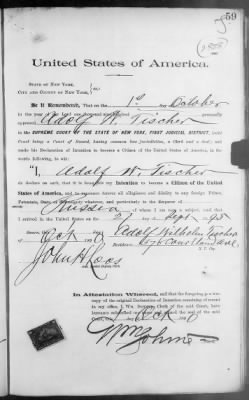 59
United States of America.
STATE OF NEW YORK,
CITY AND COUNTY OF NEW YORK,
Be it Remembered, That on the 1st day October
in the year of the Lord one thousand
appeared Adolf W. Tischer personally
in the SUPREME COURT OF THE STATE OF NEW YORK, FIRST JUDICIAL DISTRICT, (said
Court being a Court of Record, having common law jurisdiction, a Clerk and a Seal) and
made his Declaration of Intention to become a Citizen of the United States of America, in the
words following, to wit:
"I, Adolf W. Tischer
do declare on oath, that it is bona fide my Intention to become a Citizen of the United
States of America, and to renounce forever all allegiance and fidelity to any foreign Prince,
Potentate, State or Sovereignty whatever, and particularly to the Emperor of
Russia of whom I am now a subject, and that
I arrived in the United States on the 27 Sept 1895
Sworn Oct Adolf Wilhelm Tischer
Residence
John H.
N. Y. City
In Attestation Whereof, and that the foregoing is a true
copy of the original Declaration of Intention remaining of record
in my office, I, Wm. Sohmer, Clerk of the said Court, have
hereunto subscribed my name and affixed the seal of the said
Court, this day Oct
Wm Sohmer